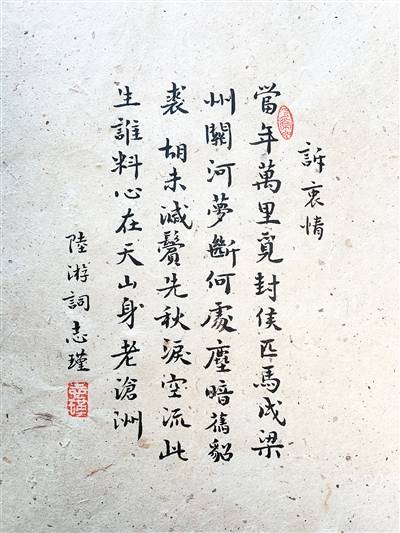 訴衷情
當年萬里覓封侯匹馬戍梁
州關河夢斷何處塵暗舊貂
裘 胡未滅鬢先秋淚空流此
生誰料心在天山身老滄洲
陸游詞志瑾